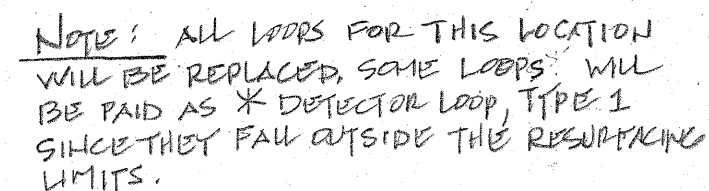 NOTE: ALL LOOPS FOR THIS LOCATION
WILL BE REPLACED. SOME LOOPS WILL
BE PAID AS * DETECTOR LOOP, TYPE 1
SINCE THEY FALL OUTSIDE THE RESURFACING
LIMITS.